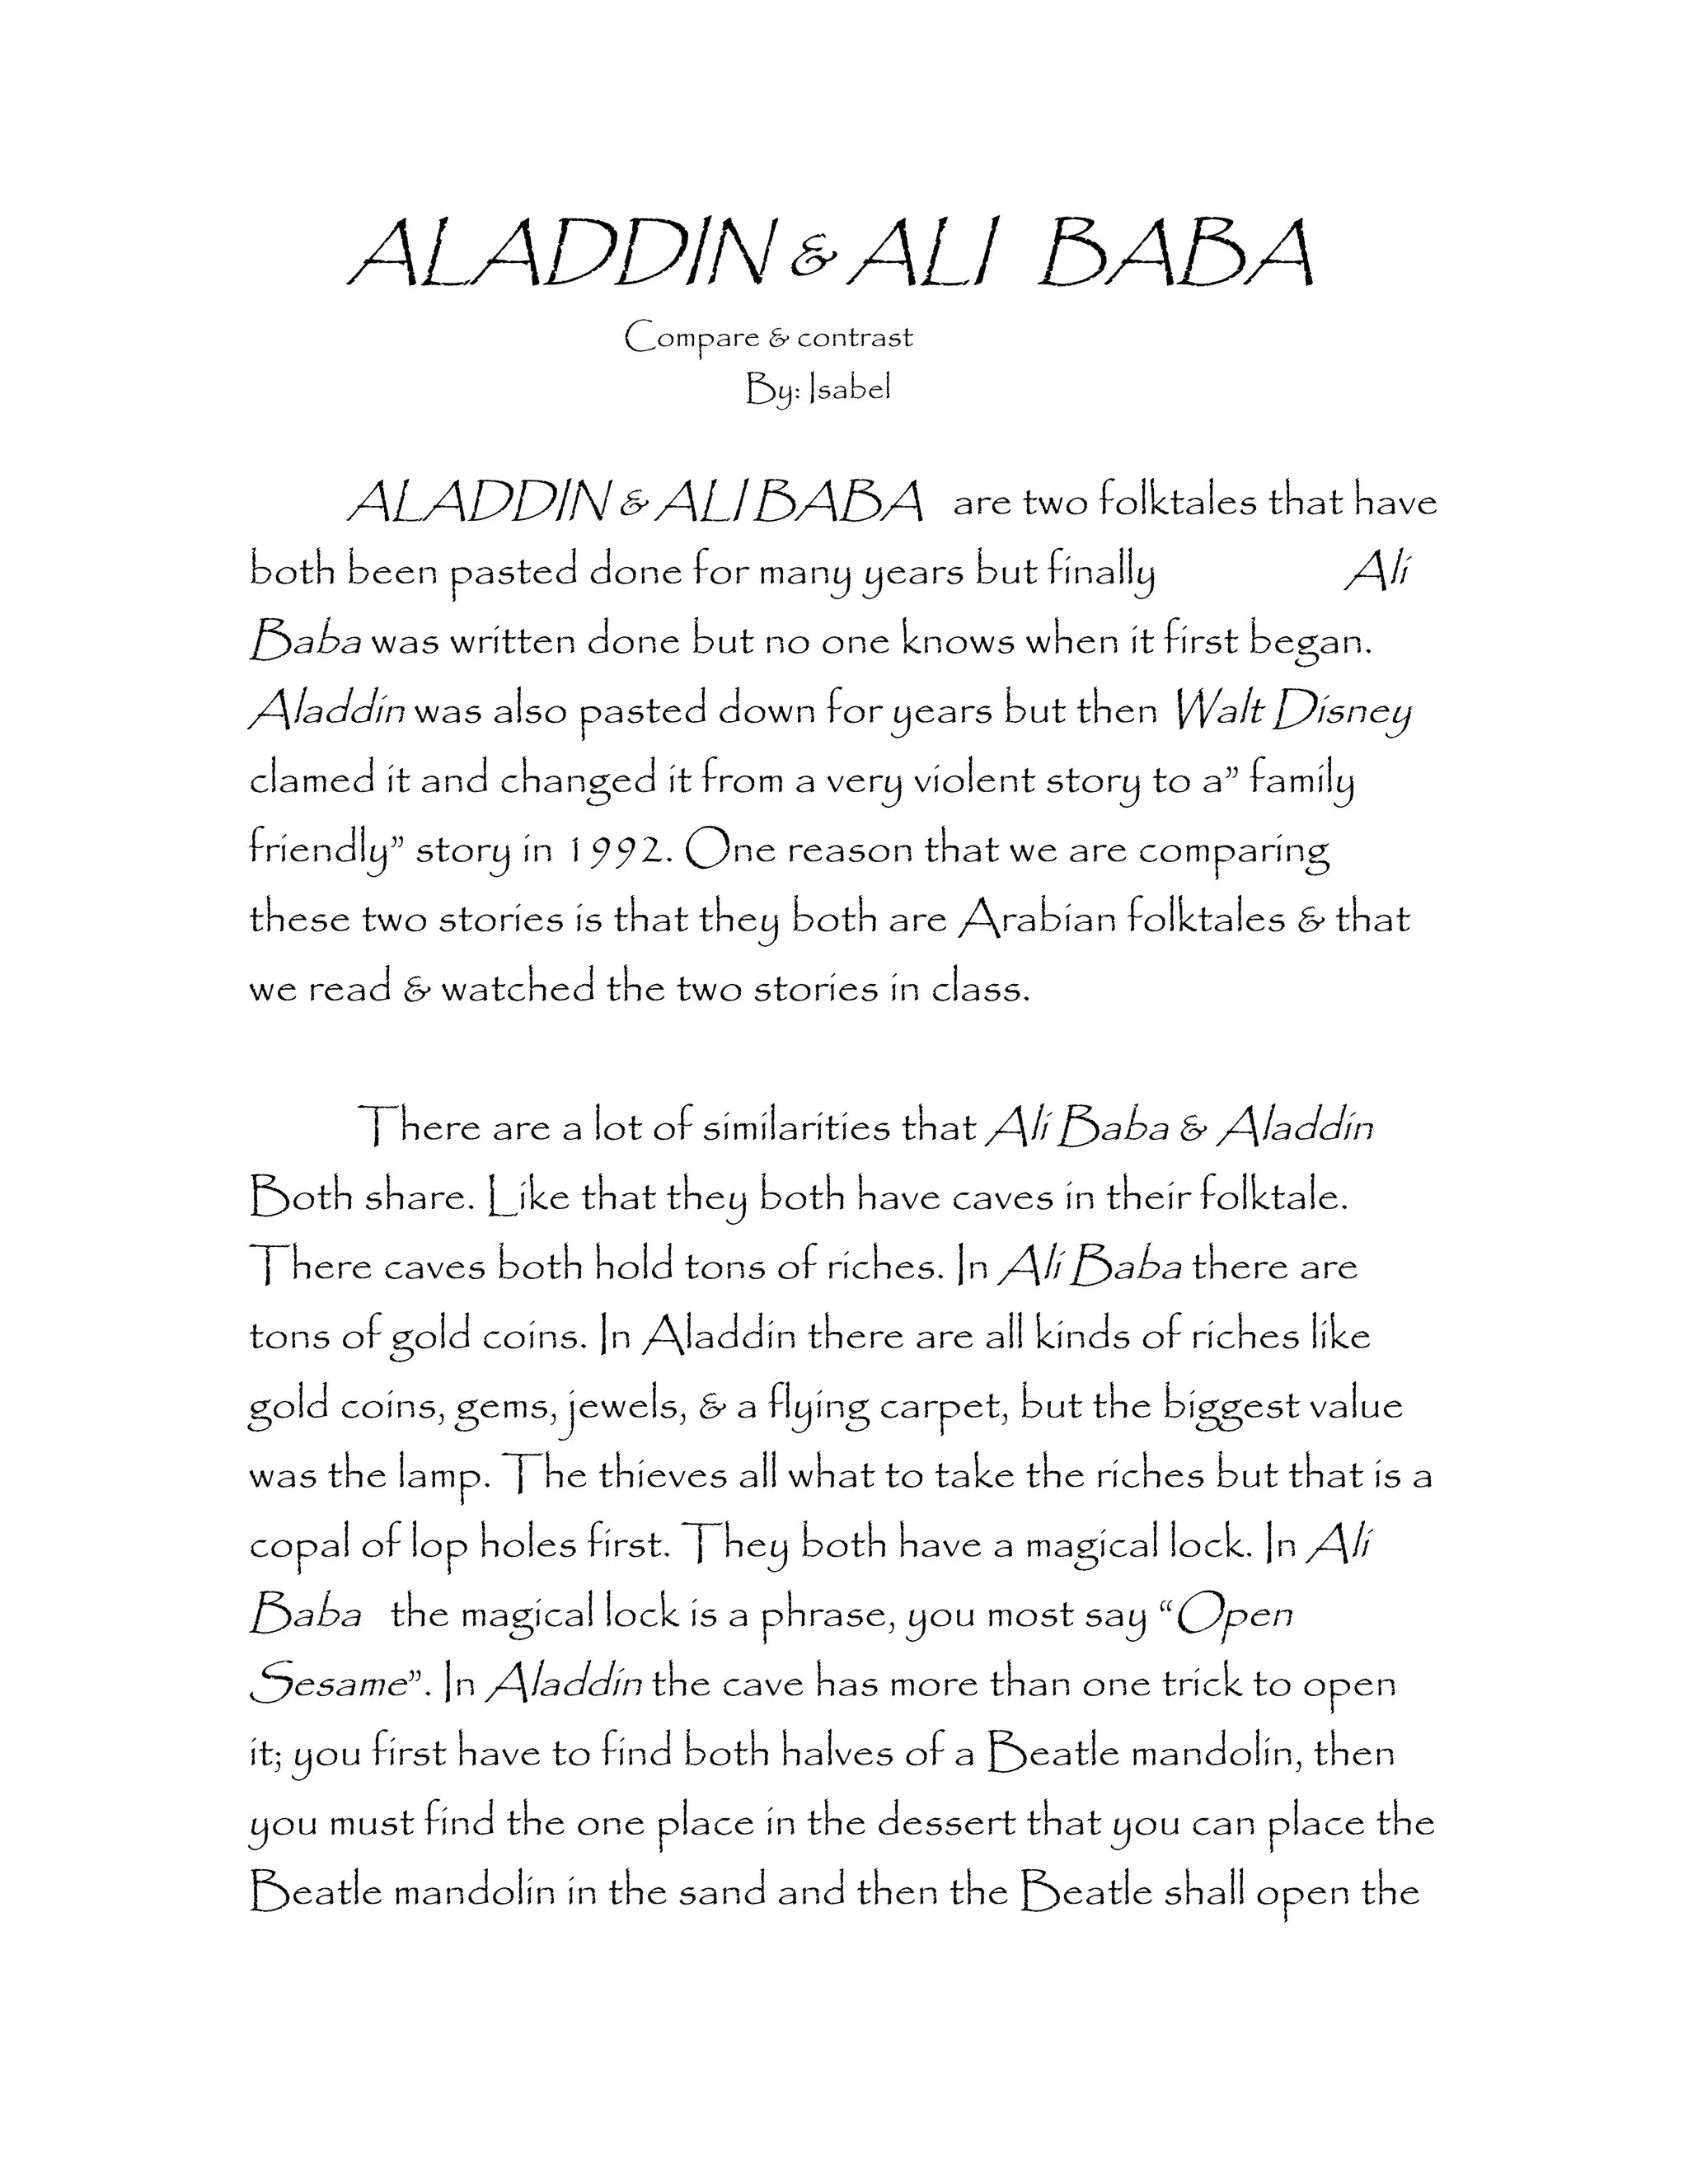 ALADDIN & ALI BABA
Compare & contrast
By: Isabel
ALADDIN & ALI BABA are two folktales that have
both been pasted done for many years but finally Ali
Baba was written done but no one knows when it first began.
Aladdin was also pasted down for years but then Walt Disney
clamed it and changed it from a very violent story to a” family
friendly” story in 1992. One reason that we are comparing
these two stories is that they both are Arabian folktales & that
we read & watched the two stories in class.
There are a lot of similarities that Ali Baba & Aladdin
Both share. Like that they both have caves in their folktale.
There caves both hold tons of riches. In Ali Baba there are
tons of gold coins. In Aladdin there are all kinds of riches like
gold coins, gems, jewels, & a flying carpet, but the biggest value
was the lamp. The thieves all what to take the riches but that is a
copal of lop holes first. They both have a magical lock. In Ali
Baba the magical lock is a phrase, you most say “Open
Sesame”. In Aladdin the cave has more than one trick to open
it; you first have to find both halves of a Beatle mandolin, then
you must find the one place in the dessert that you can place the
Beatle mandolin in the sand and then the Beatle shall open the